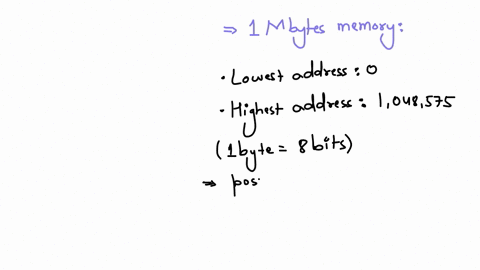 ⇒ 1 Mbytes memory:
• Lowest address: 0
• Highest address: 1,048,575
(1 byte = 8 bits)
⇒ pos